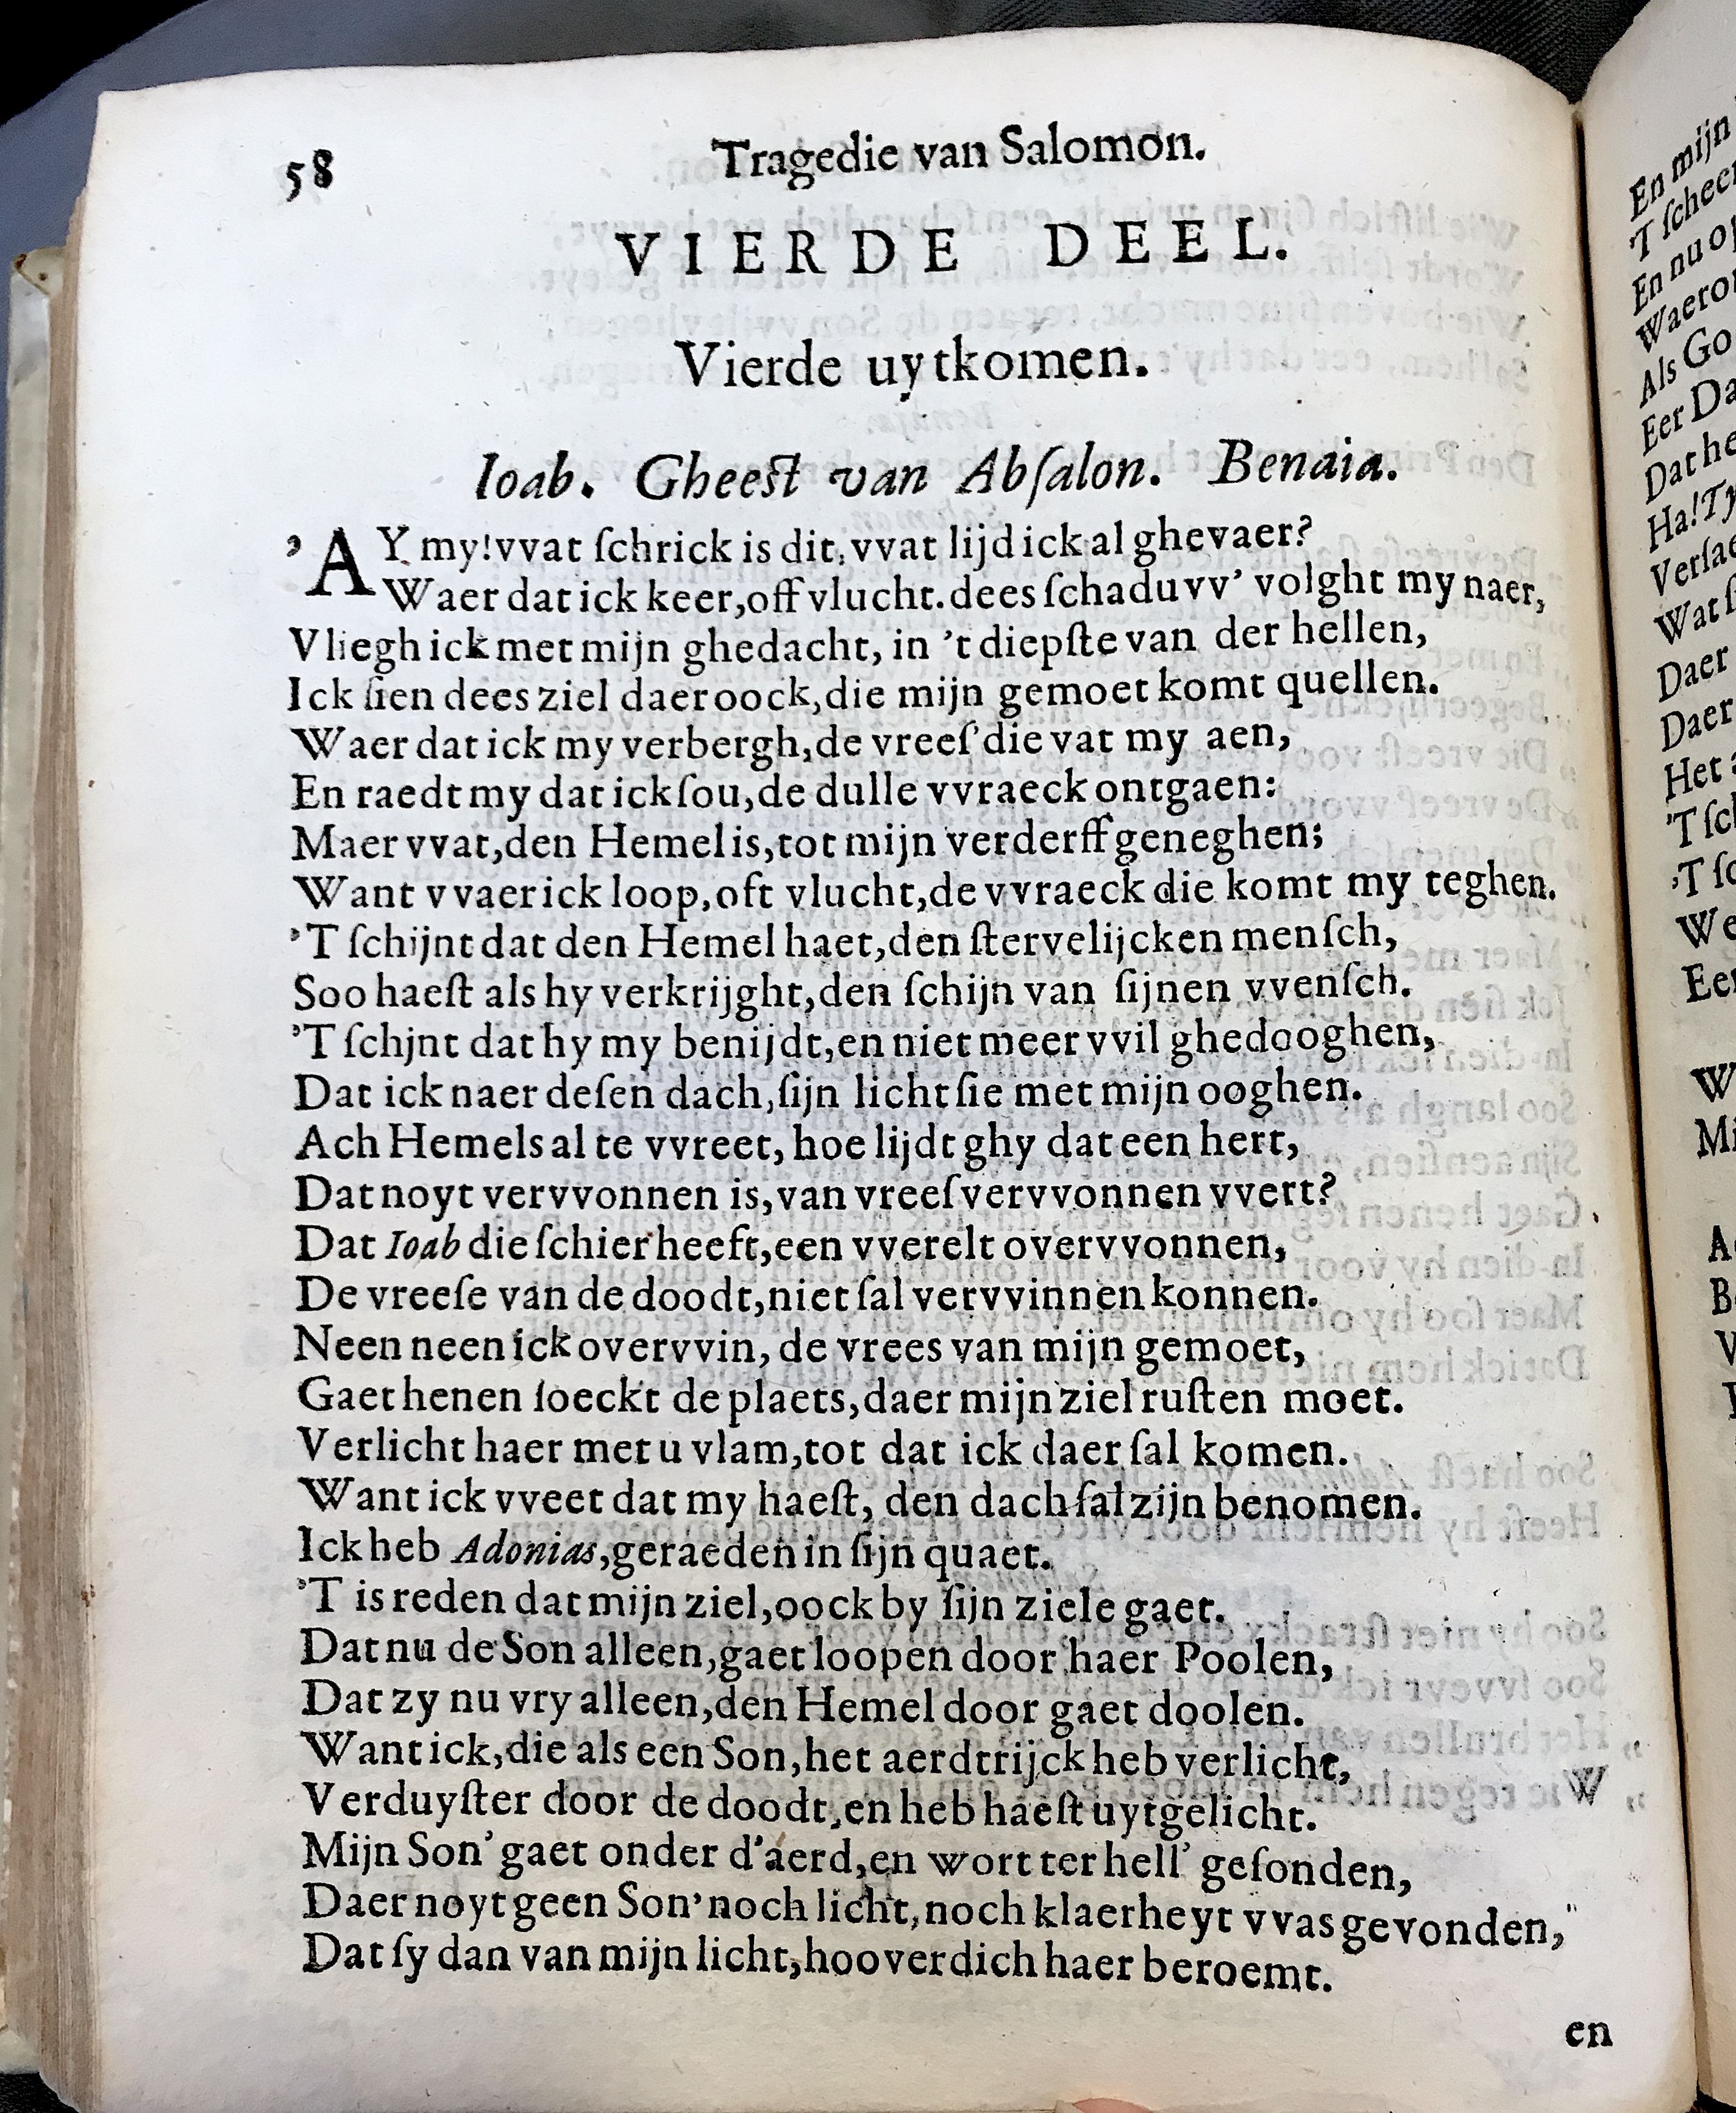 58 Tragedie van Salomon.
VIERDE DEEL.
Vierde uytkomen.
Ioab. Gheest van Abſalon. Benaia.
'AY my! vvat ſchrick is dit, vvat lijd ick al ghevaer?
Waer dat ick keer, off vlucht. dees ſchaduvv' volght my naer,
Vliegh ick met mijn ghedacht, in 't diepſte van der hellen,
Ick ſien dees ziel daer oock, die mijn gemoet komt quellen.
Waer dat ick my verbergh, de vreeſ' die vat my aen,
En raedt my dat ick ſou, de dulle vvraeck ontgaen:
Maer vvat, den Hemel is, tot mijn verderff geneghen;
Want vvaer ick loop, oft vlucht, de vvraeck die komt my teghen.
'T ſchijnt dat den Hemel haet, den ſtervelijcken menſch,
Soo haeſt als hy verkrijght, den ſchijn van ſijnen vvenſch.
'T ſchjnt dat hy my benijdt, en niet meer vvil ghedooghen,
Dat ick naer deſen dach, ſijn licht ſie met mijn ooghen.
Ach Hemels al te vvreet, hoe lijdt ghy dat een hert,
Dat noyt vervvonnen is, van vreeſ vervvonnen vvert?
Dat Ioab die ſchier heeft, een vverelt overvvonnen,
De vreeſe van de doodt, niet ſal vervvinnen konnen.
Neen neen ick overvvin, de vrees van mijn gemoet,
Gaet henen ſoeckt de plaets, daer mijn ziel ruſten moet.
Verlicht haer met u vlam, tot dat ick daer ſal komen.
Want ick vveet dat my haeſt, den dach ſal zijn benomen.
Ick heb Adonias, geraeden in ſijn quaet.
'T is reden dat mijn ziel, oock by ſijn ziele gaet.
Dat nu de Son alleen, gaet loopen door haer Poolen,
Dat zy nu vry alleen, den Hemel door gaet doolen.
Want ick, die als een Son, het aerdtrijck heb verlicht,
Verduyſter door de doodt, en heb haeſt uytgelicht.
Mijn Son' gaet onder d'aerd, en wort ter hell' geſonden,
Daer noyt geen Son' noch licht, noch klaerheyt vvas gevonden,
Dat ſy dan van mijn licht, hooverdich haer beroemt.
en
En mijn
'T ſcheer
En nu op
Waero
Als Go
Eer Da
Dat he
Ha! Ty
Verſae
Wat ſ
Daer
Daer
Het a
'T ſch
'T ſc
We
Eer
W
Mi